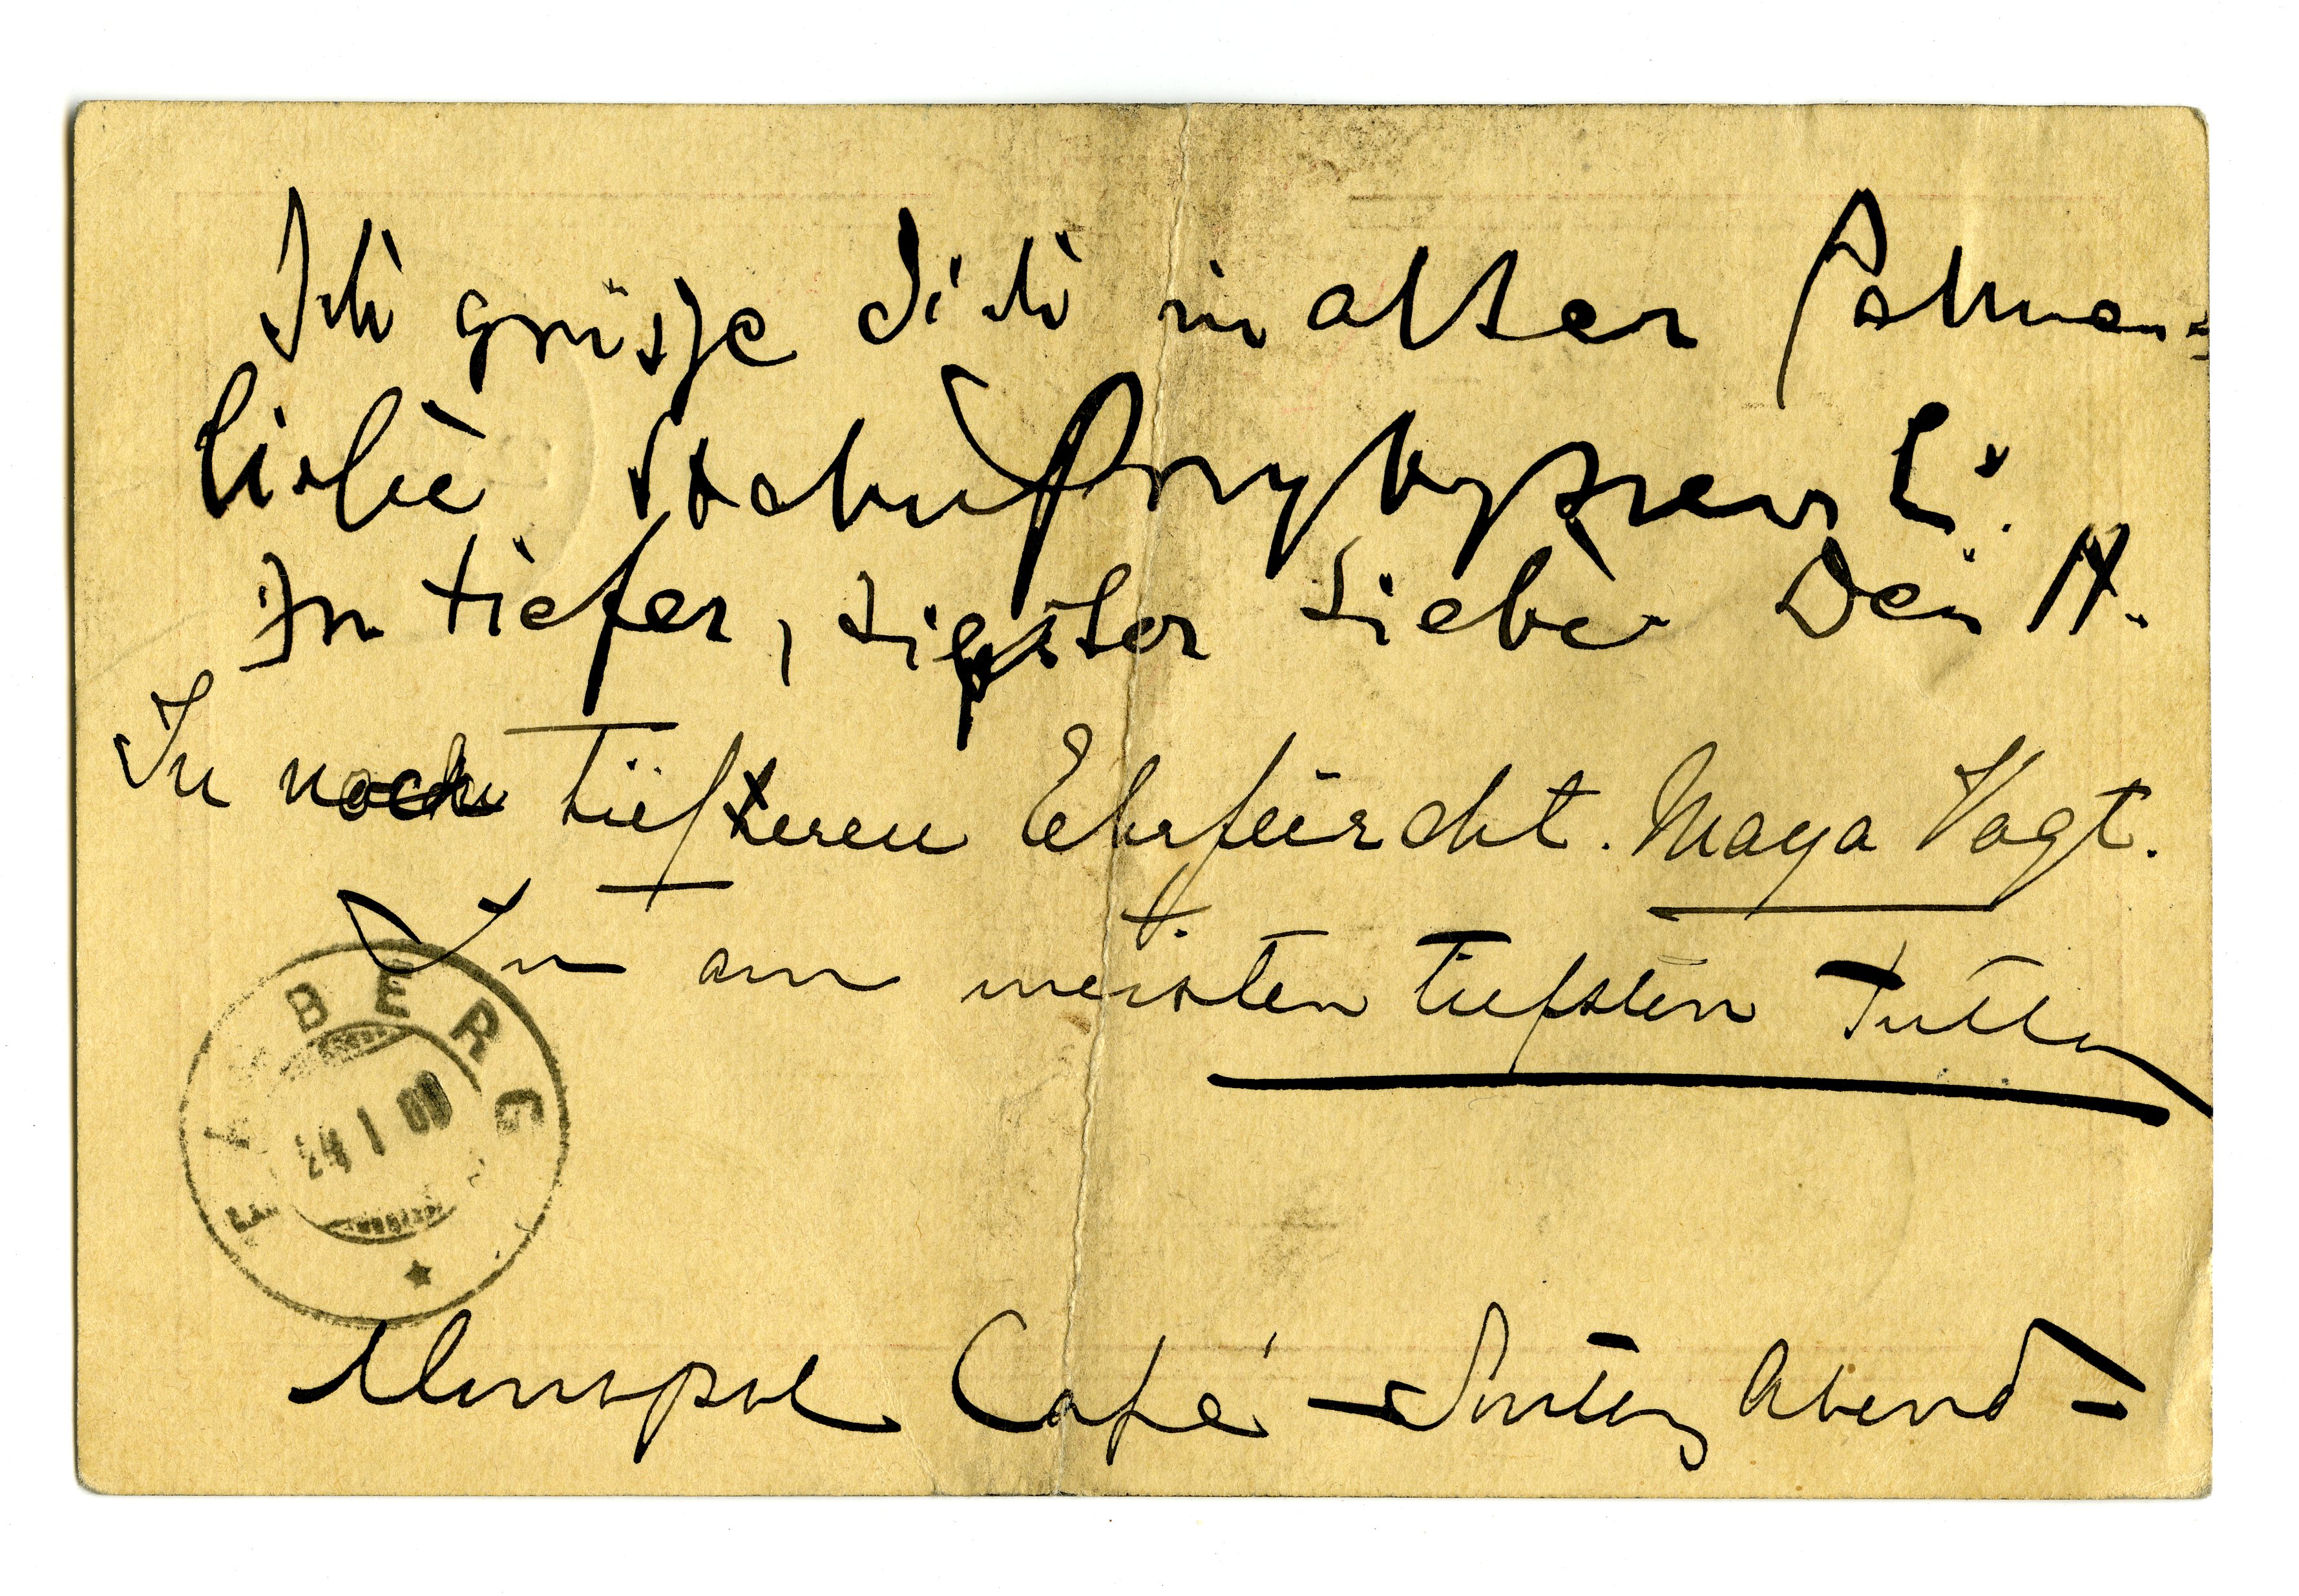 Ich grüsse dich in alter
liebe Stachu Przybyszewski.
In tiefer, tiefster Liebe Dein
In noch tiefsteren Ehrfurcht. Maya Vogt.
In am meisten tiefsten
BERG
24 1 00
Monopol Café – Sonntag Abend –